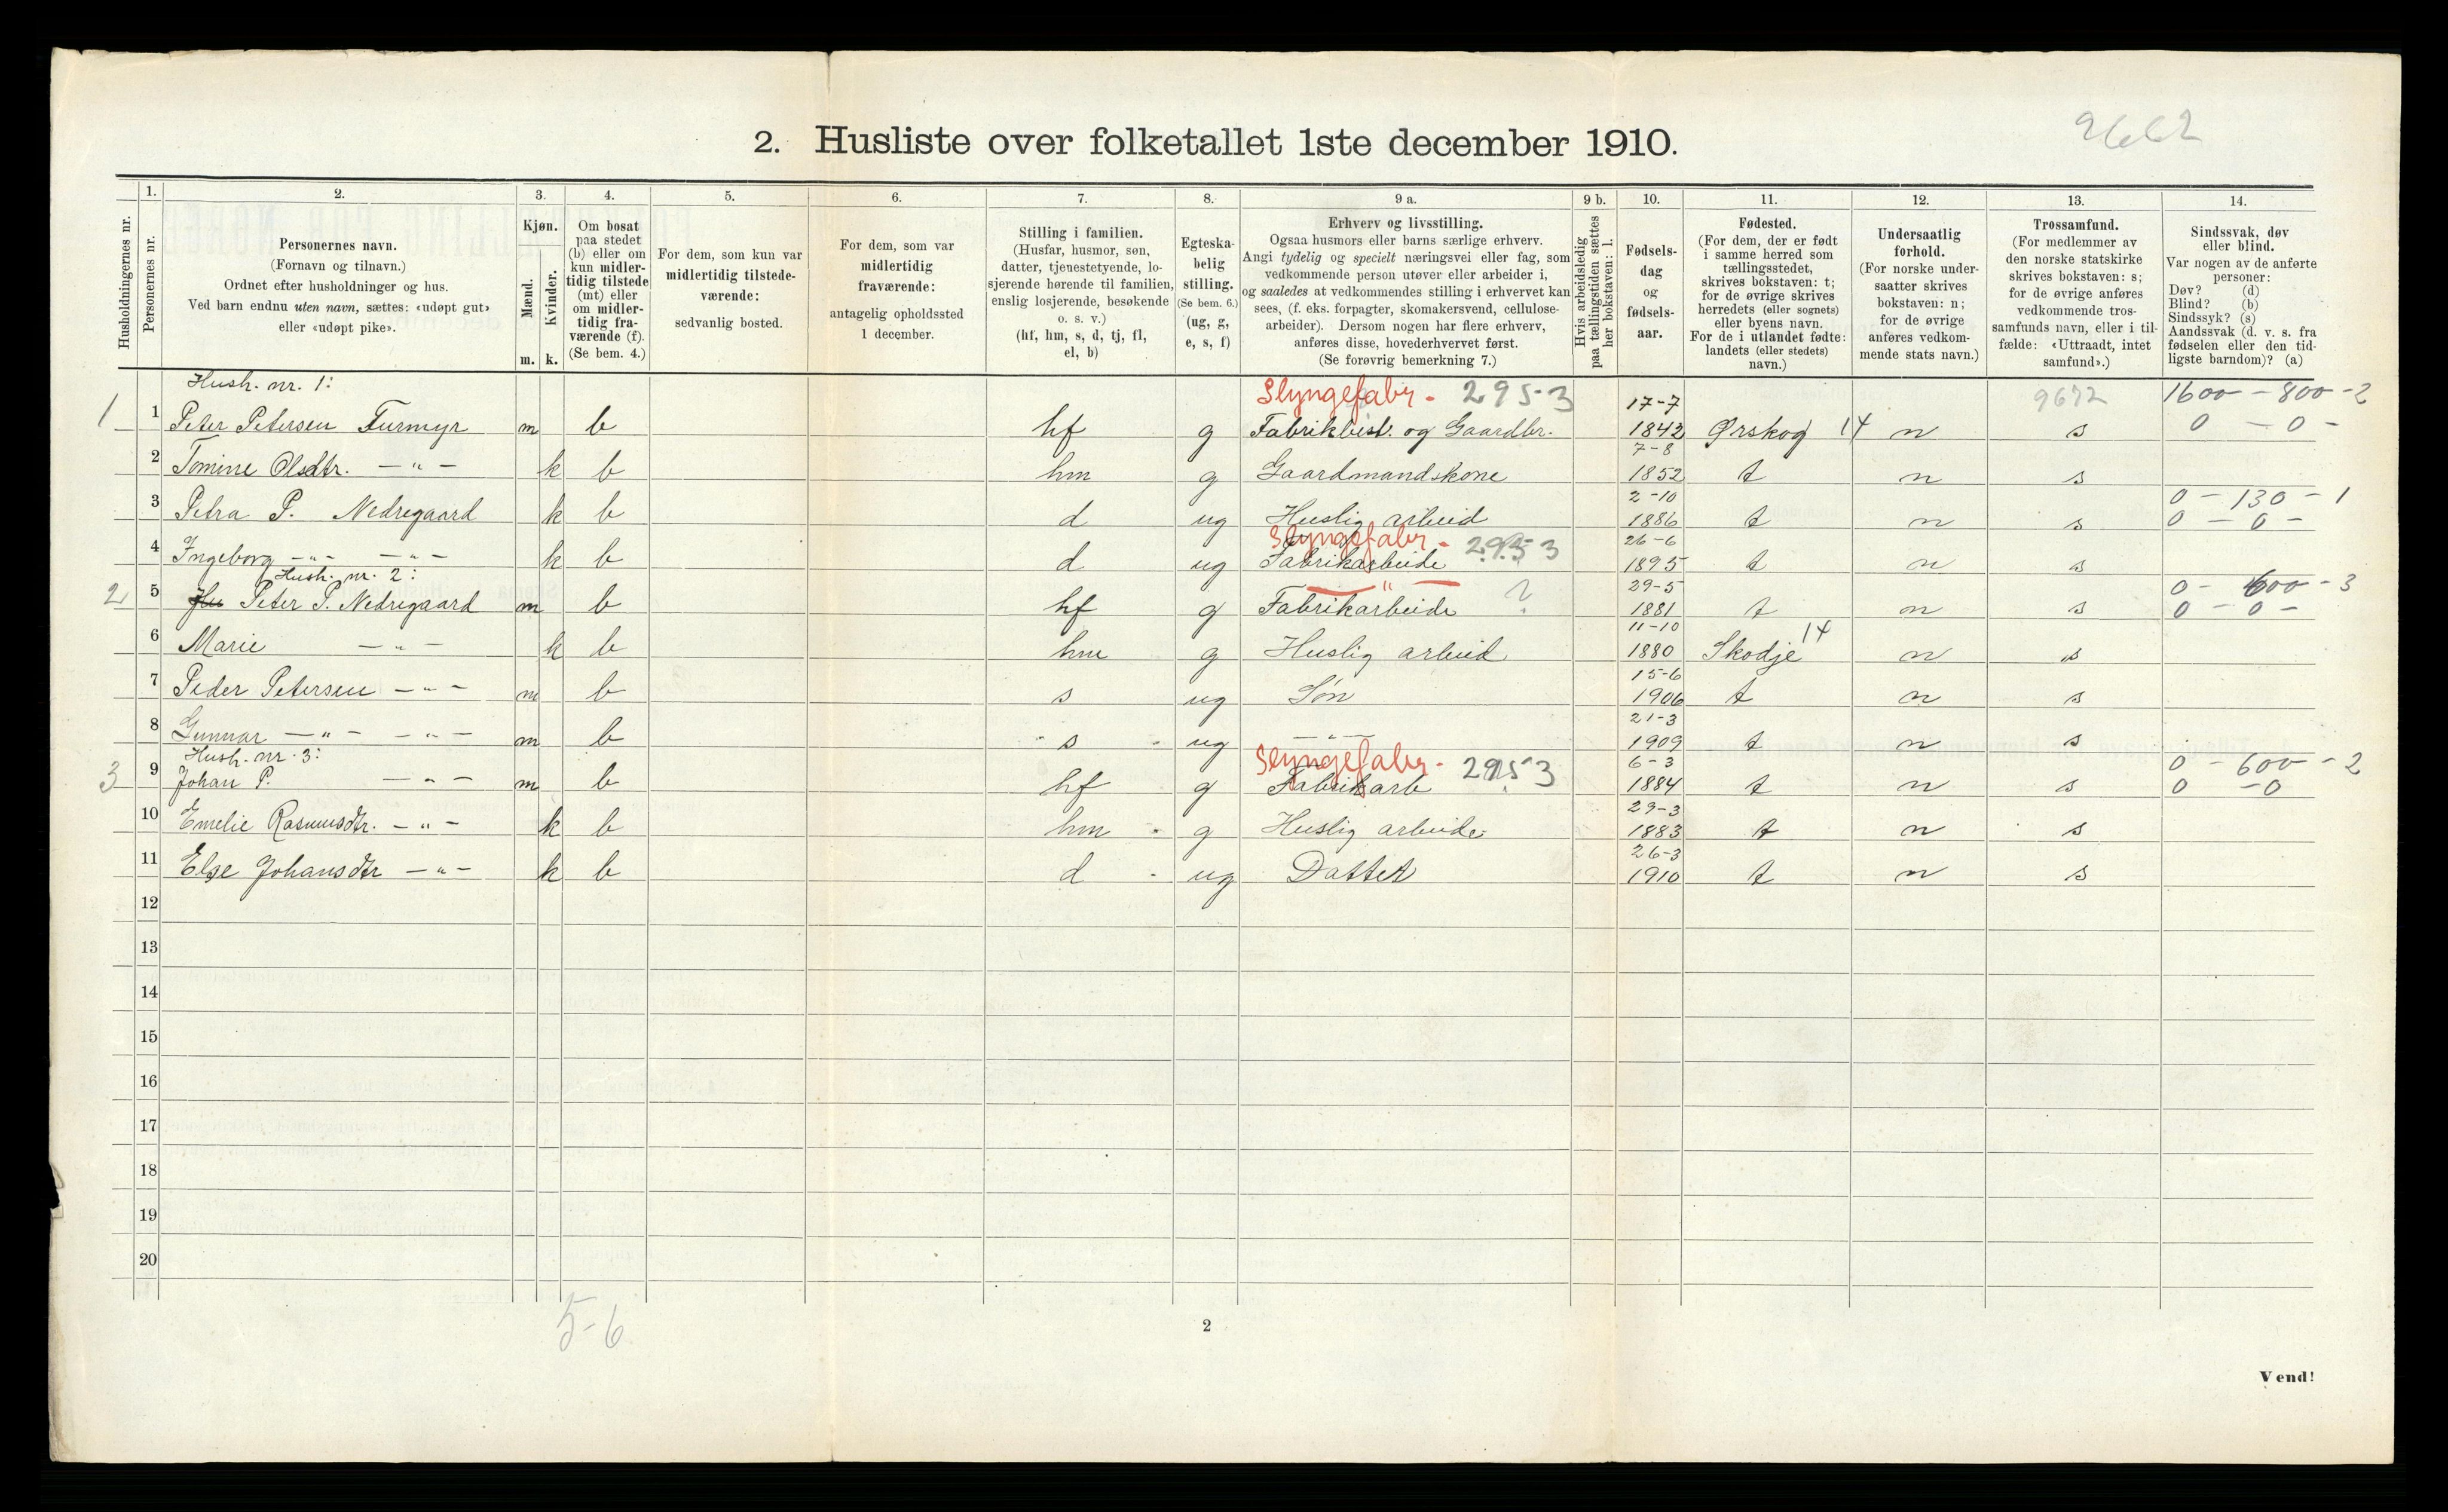 2662
2. Husliste over folketallet 1ste december 1910.
Husholdningernes nr.
1.
Personernes nr.
2.
Personernes navn.
(Fornavn og tilnavn.)
Ordnet efter husholdninger og hus.
Ved barn endnu uten navn, sættes: «udøpt gut»
eller «udøpt pike».
3.
Kjøn.
Mænd.
Kvinder.
m. k.
4.
Om bosat
paa stedet
(b) eller om
kun midler-
tidig tilstede
(mt) eller
om midler-
tidig fra-
værende (f).
(Se bem. 4.)
5.
For dem, som kun var
midlertidig tilstede-
værende:
sedvanlig bosted.
6.
For dem, som var
midlertidig
fraværende:
antagelig opholdssted
1 december.
7.
Stilling i familien.
(Husfar, husmor, søn,
datter, tjenestetyende, lo-
sjerende hørende til familien,
enslig losjerende, besøkende
o. s. v.)
(hf, hm, s, d, tj, fl,
el, b)
8.
Egteska-
belig
stilling.
(Se bem. 6.)
(ug, g,
e, s, f)
9 a.
Erhverv og livsstilling.
Ogsaa husmors eller barns særlige erhverv.
Angi tydelig og specielt næringsvei eller fag, som
vedkommende person utøver eller arbeider i,
og saaledes at vedkommendes stilling i erhvervet kan
sees, (f. eks. forpagter, skomakersvend, cellulose-
arbeider). Dersom nogen har flere erhverv,
anføres disse, hovederhvervet først.
(Se forøvrig bemerkning 7.)
9 b.
Hvis arbeidsledig
paa tællingstiden sættes
her bokstaven: l.
10.
Fødsels-
dag
og
fødsels-
aar.
11.
Fødested.
(For dem, der er født
i samme herred som
tællingsstedet,
skrives bokstaven: t;
for de øvrige skrives
herredets (eller sognets)
eller byens navn.
For de i utlandet fødte:
landets (eller stedets)
navn.)
12.
Undersaatlig
forhold.
(For norske under-
saatter skrives
bokstaven: n;
for de øvrige
anføres vedkom-
mende stats navn.)
13.
Trossamfund.
(For medlemmer av
den norske statskirke
skrives bokstaven: s;
for de øvrige anføres
vedkommende tros-
samfunds navn, eller i til-
fælde: «Uttraadt, intet
samfund».)
14.
Sindssvak, døv
eller blind.
Var nogen av de anførte
personer:
Døv? (d)
Blind? (b)
Sindssyk? (s)
Aandssvak (d. v. s. fra
fødselen eller den tid-
ligste barndom)? (a)
Hush. nr. 1: Slyngefabr. 295-3 17-7 9672 1600 - 800 - 2
1 1 Peter Petersen Furmyr m b hf g Fabrikbest. og Gaardbr. 1842 Ørskog 14 n s 0 - 0 -
7-8
2 Tomine Olsdtr. - " - k b hm g Gaardmandskone 1852 t n s
2-10 0 - 130 - 1
3 Petra P. Nedregaard k b d ug Huslig arbeid 1886 t n s 0 - 0 -
Slyngefabr. 295 3 26-6
4 Ingeborg - " - - " - k b d ug Fabrikarbeide 1895 t n s
Hush. nr. 2: " 29-5 0 - 600 - 3
2 5 Peter P. Nedregaard m b hf g Fabrikarbeide ? 1881 t n s 0 - 0 -
11-10
6 Marie - " - k b hm g Huslig arbeid 1880 Skodje 14 n s
15-6
7 Peder Petersen - " - m b s ug Søn 1906 t n s
21-3
8 Gunnar - " - - " - m b s ug - " - 1909 t n s
Hush. nr. 3: Slyngefabr. 295 3 6-3 0 - 600 - 2
3 9 Johan P. - " - m b hf g Fabrikarb 1884 t n s 0 - 0
29-3
10 Emelie Rasmusdtr. - " - k b hm g Huslig arbeide 1883 t n s
26-3
11 Else Johansdtr - " - k b d ug Datter 1910 t n s
12
13
14
15
16
17
18
19
20
5-6
2
Vend!